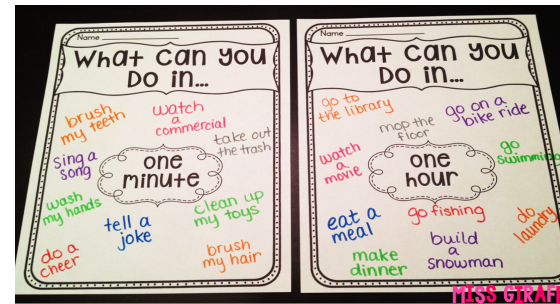 Name
What can you
Do in...
brush
my teeth
watch
a
commercial
take out
the trash
sing a
song
one
minute
wash
my hands
tell a
joke
clean up
my toys
do a
cheer
brush
my hair
Name
What can you
Do in...
go to
the library
mop the
floor
go on a
bike ride
watch
a
movie
one
hour
go
swimming
eat a
meal
go fishing
do
laundry
make
dinner
build
a
snowman
MISS GIRAF